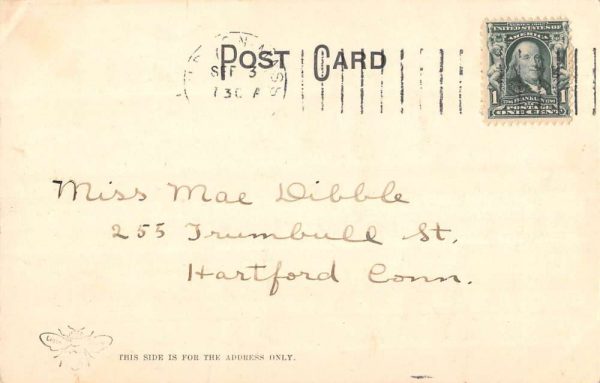 POST CARD
SEP 3
730 A
SERIES 1902
UNITED STATES OF AMERICA
1 1
POSTAGE
ONE CENT
Miss Mae Dibble
255 Trumbull St.
Hartford Conn.
THIS SIDE IS FOR THE ADDRESS ONLY.